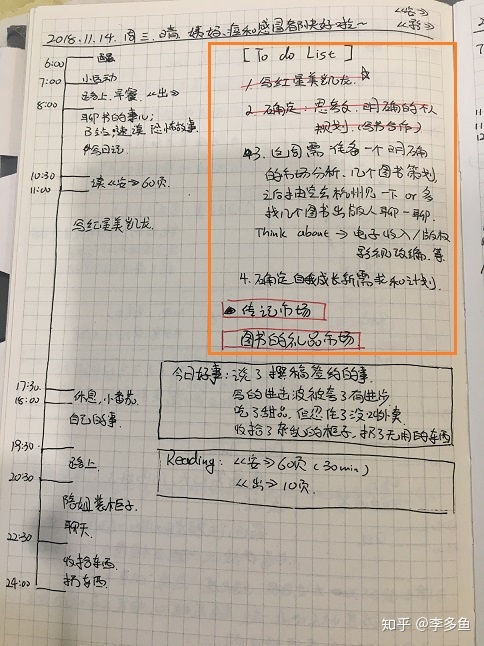 2018.11.14. 周三. 晴 姨妈.痘和感冒都快好啦~
6:00
7:00
小运动
路上.早餐.《出》
8:00
聊书的事儿;
#写日记
10:30
11:00
读《容》60页.
写红星美凯龙.
17:30
18:00
休息,小番茄
自己的事
19:30
路上
20:30
陪姐装柜子
聊天
22:30
收拾东西.
扔东西.
24:00
[To do List]
1. 写红星美凯龙.
2. 确定:思考好明确的个人
规划.(写书合作)
3. 这周需准备一个明确
的市场分析.几个图书策划,
之后抽空去杭州见一下 or 多
找几个图书出版人聊一聊.
Think about → 电子收入/版权
影视改编.等.
4. 确定自我成长新需求和计划.
传记市场
图书的礼品市场
今日好事:说了撰稿签约的事.
写的
吃了甜品,但忍住了没叫外卖.
收拾了杂乱的柜子,扔了无用的东西
Reading: 《容》60页(30min)
《出》10页.
知乎 @李多鱼